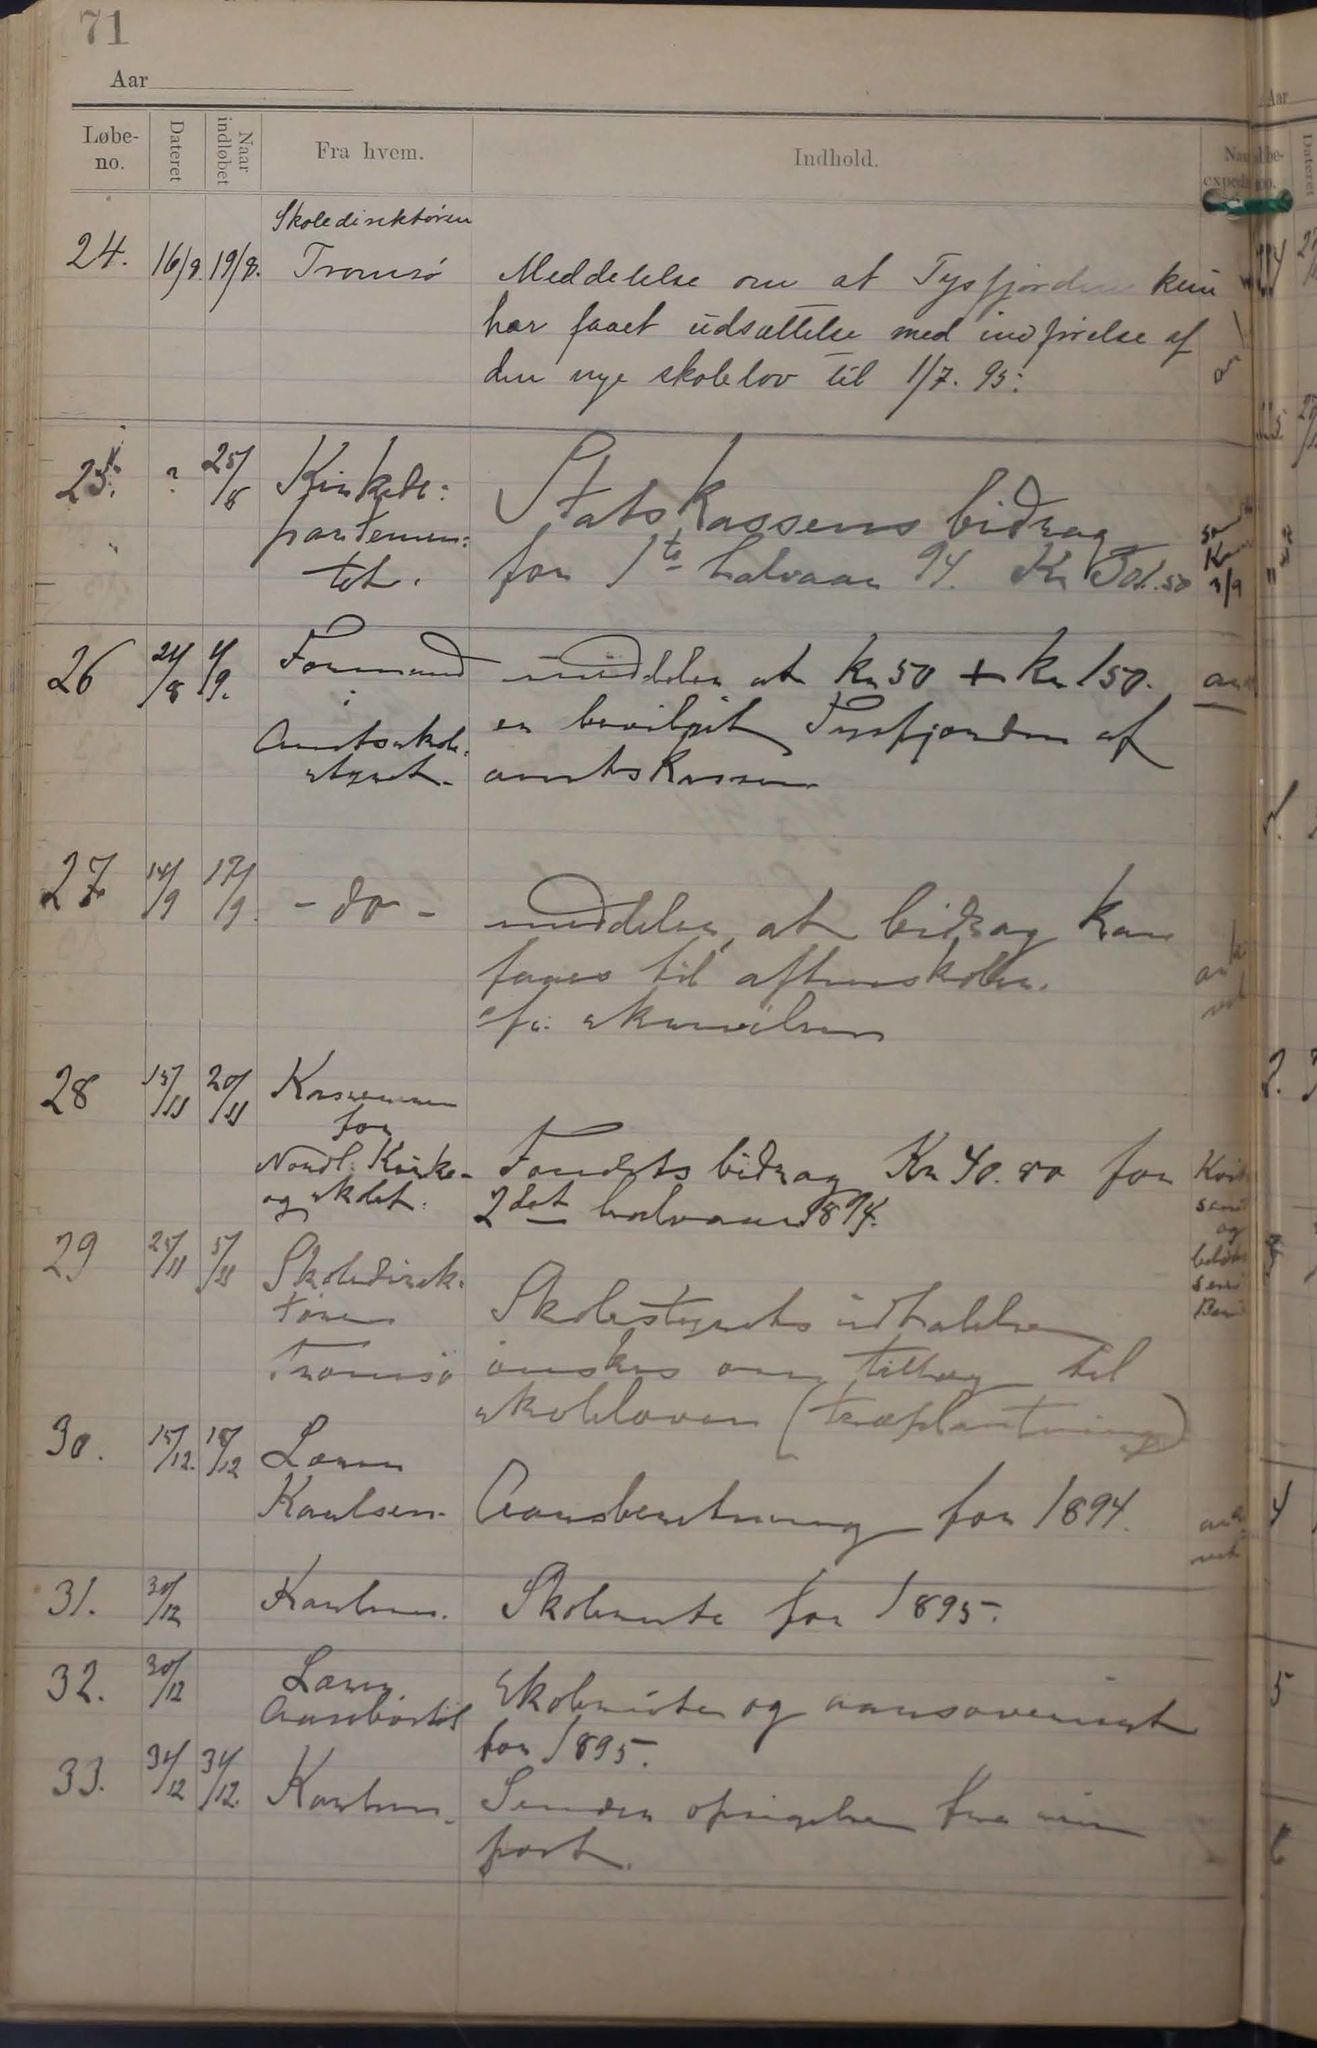 71
Aar
Løbe-
no.
Dateret
Naar
indløbet
Fra hvem.
Indhold.
Skoledirektøren
24. 16/8. 19/8. Tromsø Meddelelse om at Tysfjorden kun
har faaet udsættelse med indførelse af
den nye skolelov til 1/7. 95.
25. ? 25/8 Kirkede:
partemen:
tet.
Statskassens bidrag
for 1ste halvaar 94. Kr 301.50
3/9
26 24/8 4/9. Formand
i
Amtsskole-
styret.
meddeler at kr 50 + kr 150.
er bevilget Tysfjorden af
amtskassen
27 14/9 17/9. - do - meddeler, at bidrag kan
faaes til aftenskoler.
cfr. skrivelsen
28 15/11 20/11 Kassereren
for
Nordl. Kirke-
og skolef.
Fondets bidrag Kr 40.80 for
2det halvaar 1894.
29 25/11 5/11 Skoledirek-
tøren
Tromsø
Skolestyrets udtalelse
ønskes om tillæg til
skoleloven (træplantning)
30. 15/12. 18/12 Lærer
Karlsen. Aarsberetning for 1894.
31. 30/12 Karlsen. Skoleruste for 1895.
32. 30/12 Lærer
og aarsoversigt
for 1895.
33. 31/12 31/12. Karlsen. Sender opsigelse fra sin
post.